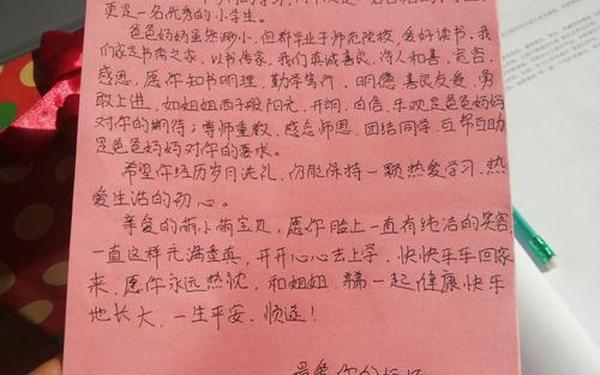 更是一名优秀的小学生。
爸爸妈妈虽然渺小,但都毕业于师范院校,爱好读书,我
们家是书香之家,以书传家,我们真诚善良,待人和善,宽容、
感恩,愿你知书明理,勤学笃行,明德、善良友爱,勇
敢上进,如姐姐西子般阳光,开朗、自信、乐观是爸爸妈妈
对你的期待;尊师重教,感念师恩,团结同学,互帮互助
是爸爸妈妈对你的要求。
希望你经历岁月洗礼,仍能保持一颗热爱学习、热
爱生活的初心。
亲爱的萌小萌宝贝,愿你脸上一直有纯洁的笑容,
一直这样充满童真,开开心心去上学,快快乐乐回家
来,愿你永远热忱,和姐姐、一起健康快乐
地长大,一生平安、顺遂!
最爱你的